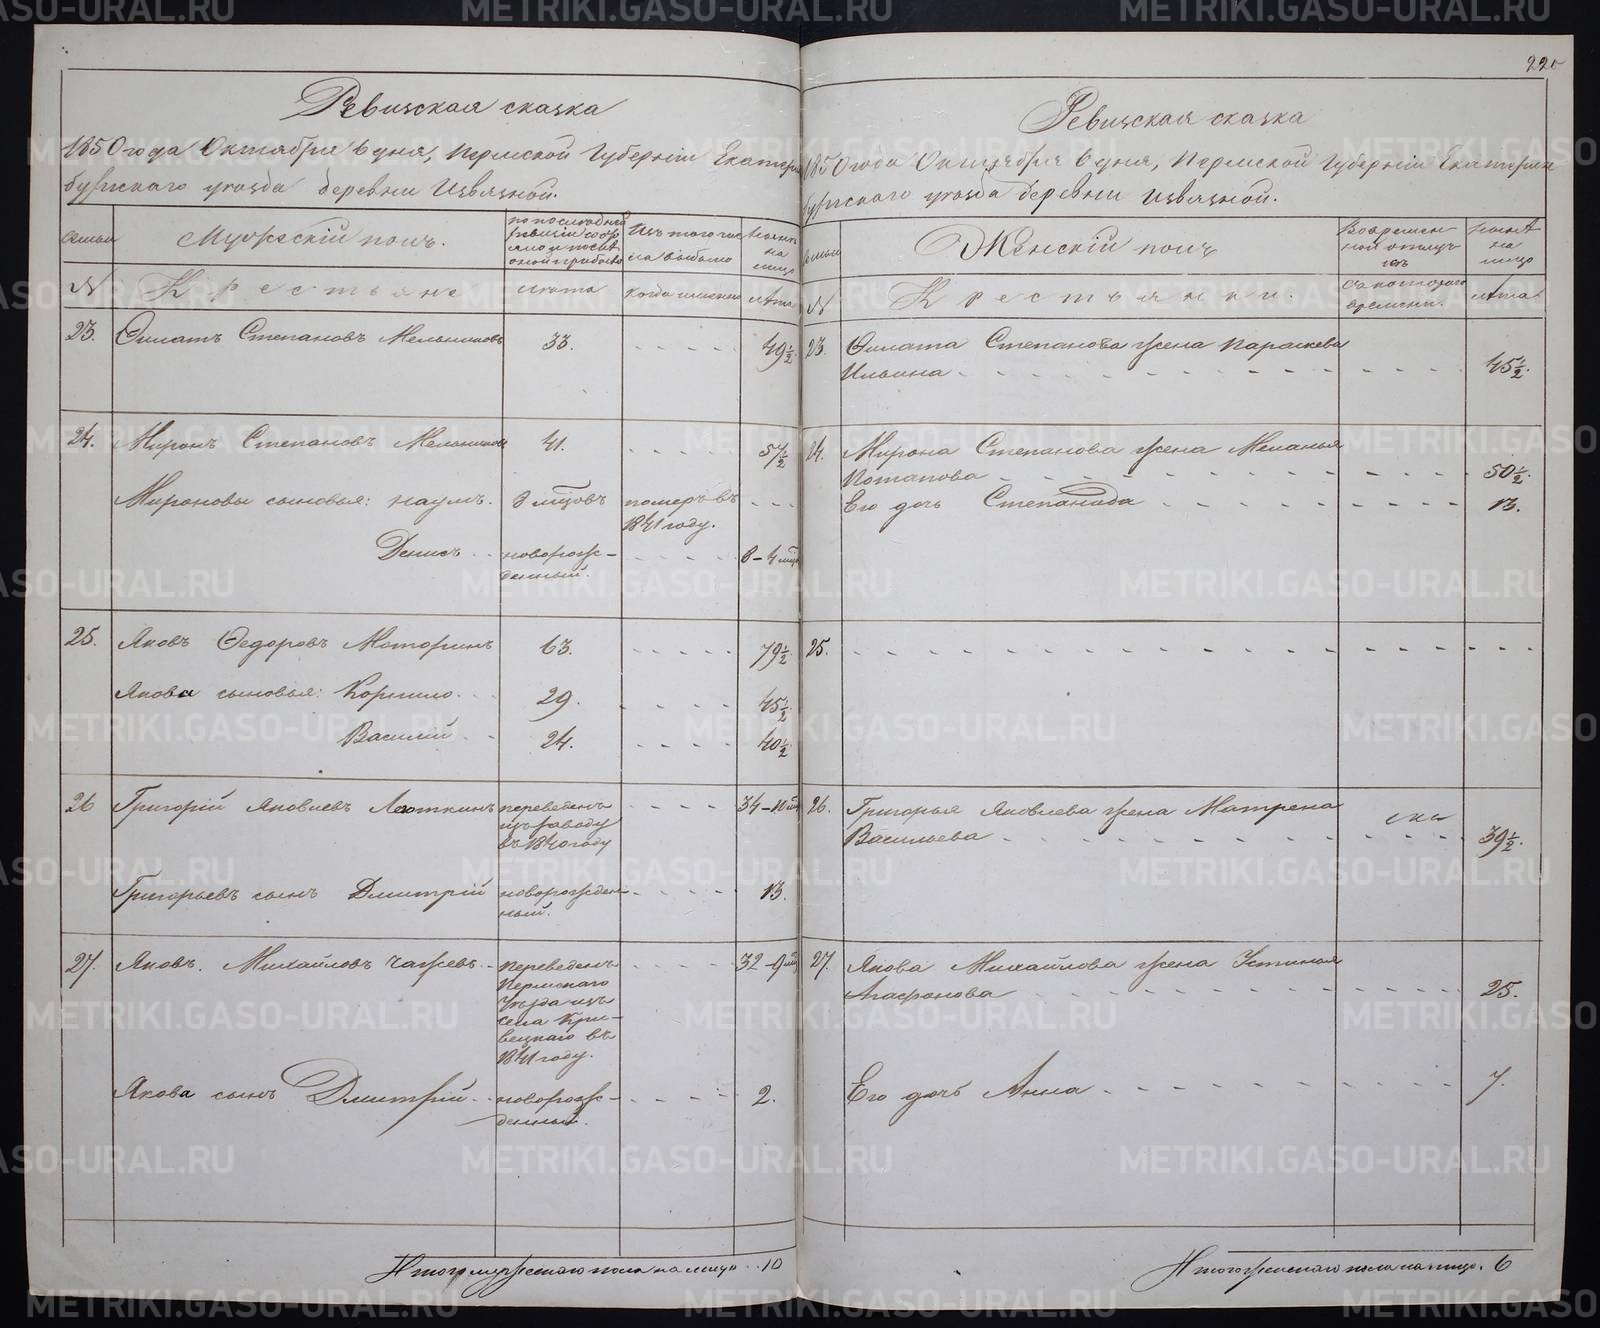 220
Ревизская сказка
1850 года Октября 6 дня, Пермской Губернiи Екатерин
бургскаго уезда деревни Извязной.
Семьи
Мужескiй полъ.
по последней
ревизiи состо
яло и после
оной прибыло
Изъ того чис
ла выбыло
Ныне
на
лицо
N
Крестьяне
Лета
Когда именно
Лета
23.
Филатъ Степановъ Мельниковъ
33.
49 1/2
24.
Миронъ Степановъ Мельниковъ
41.
57 1/2
Мироновы сыновья: Наумъ.
8 мцовъ
померъ въ
1841 году.
Денисъ
новорож-
денный.
8-4 мц
25.
Яковъ Федоровъ Моторинъ
63.
79 1/2
Якова сыновья: Корнило.
29.
45 1/2
Василiй
24.
40 1/2
26
Григорiй Яковлевъ Лоткинъ
переведенъ
изъ заводу
въ 1840 году
34-10 мц
Григорьевъ сынъ Дмитрiй
новорожден-
ный.
13.
27.
Яковъ. Михайловъ Чажевъ
переведенъ
Пермскаго
уезда изъ
села Кри-
вецкаго въ
1841 году.
32-9 мц
Якова сынъ Дмитрiй
новорож-
денный.
2.
Итого мужескаго пола на лицо 10
Ревизская сказка
1850 года Октября 6 дня, Пермской Губернiи Екатерин
бургскаго уезда деревни Извязной.
Семьи
Женскiй полъ
Вовремен-
ной отлуч
ке
Ныне
на
лицо
N
Крестьянки.
Съ котораго
времени.
Лета
23.
Филата Степанова жена Параскева
Ильина
45 1/2
24.
Мирона Степанова жена Меланья
Потапова
50 1/2
Его дочь Степанида
13.
25.
26.
Григорья Яковлева жена Матрена
Васильева
39 1/2
27.
Якова Михайлова жена Устинья
Агафонова
25.
Его дочь Анна
7.
Итого женскаго пола на лицо. 6
METRIKI.GASO-URAL.RU